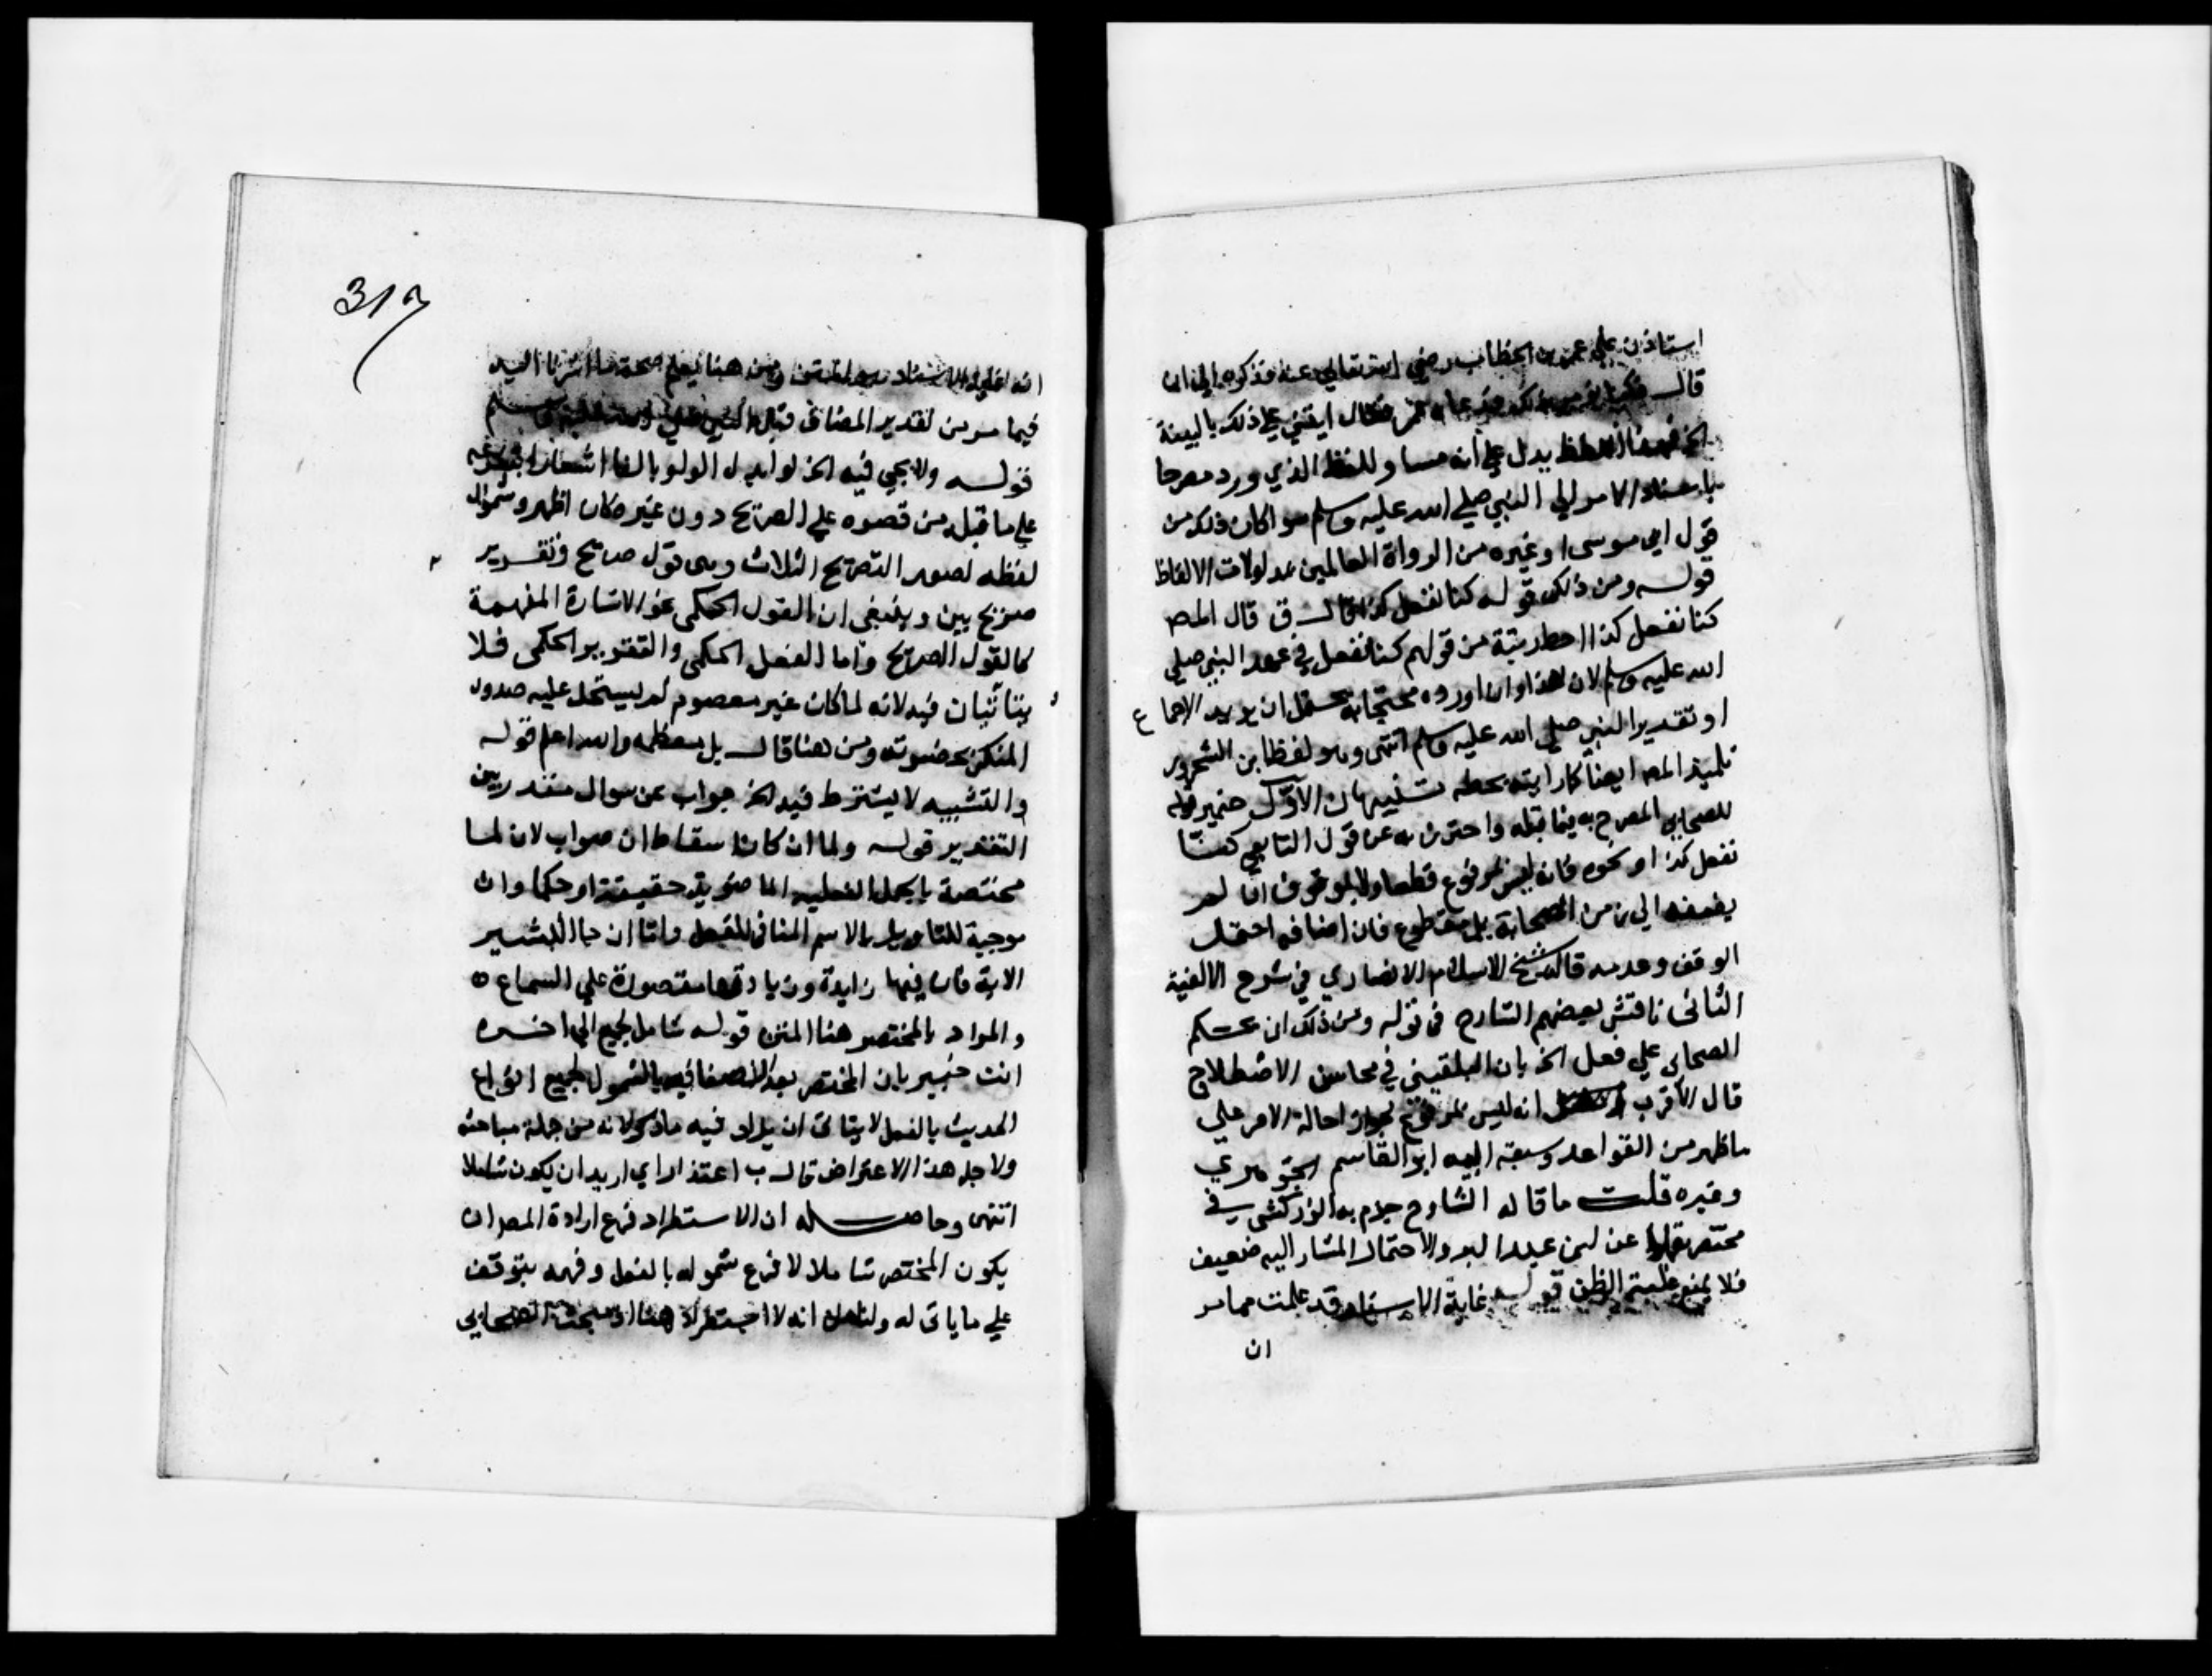 استاذن علي عمر بن الخطاب رضي الله تعالي عنه فذكره الي ان
قال كنا نؤمر بذلك فقال ايتني علي ذلك بالبينة
الخ فهذا اللفظ يدل علي انه مساو للفظ الذي ورد مصرحا
باسناد الامر الي النبي صلي الله عليه وسلم سواكان ذلك من
قول ابي موسى او غيره من الرواة العالمين بمدلولات الالفاظ
قوله ومن ذلك قوله كنا نفعل كذا قال ق قال المص
كنا نفعل كذا احط رتبة من قولهم كنا نفعل في عهد النبي صلي
الله عليه وسلم لان هذا وان اورده محتجا به يحتمل ان يريد الاجماع
او تقدير النبي صلي الله عليه وسلم انتهى وهو لفظ ابن
تلميذ المص ايضا كما رايته بخطه تنبيهان الاول ضمير قوله
للصحابي المصرح به فيما قبله واحترز به عن قول التابعي كنا
نفعل كذا او نحوه فانه ليس بمرفوع قطعا ولا بموقوف ان لم
يضفه الي زمن الصحابة بل مقطوع فان اضافه احتمل
الوقف وعدمه قاله شيخ الاسلام الانصاري في شرح الالفية
الثاني ناقش بعضهم الشارح في قوله ومن ذلك ان حكم
الصحابي علي فعل الخ بان البلقيني في محاسن الاصطلاح
قال الاقرب انه ليس بمرفوع لجواز احالة الامر علي
ما ظهر من القواعد وسبقه اليه ابو القاسم الجوهري
وغيره قلت ما قاله الشارح جزم به الزركشي في
مختصره نقلا عن ابن عبد البر والاحتمال المشار اليه ضعيف
فلا يمنع غلبة الظن قوله غاية الاسناد قد علمت مما مر
ان
317
ومن هنا يعلم صحة ما اشرنا اليه
فيما مر من تقدير المضاف قبل النبي صلي الله عليه وسلم
قوله ولا يجي فيه الخ لو ابدل الواو بالفا اشعارا بتفرعه
علي ما قبله من قصره علي الصريح دون غيره كان اظهر وشموال
لفظه لصور التصريح الثلاث وهى قول صريح وتقرير
صريح بين وينبغي ان القول الحكمي نحو الاشارة المفهمة
كالقول الصريح واما الفعل الحكمي والتقرير الحكمي فلا
يتاتيان فيه لانه لما كان غير معصوم لم يستحل عليه صدور
المنكر بحضرته ومن هنا قال بل معظمه والله اعلم قوله
والتشبيه لا يشترط فيه الخ جواب عن سوال مقدر بين
التقدير قوله ولما ان كان اسقاط ان صواب لان لما
مختصة بالجمل الفعلية الماضوية حقيقة او حكما وان
موجبة للتاويل بالاسم المنافي للفعل واما ان جا البشير
الاية فان فيها زايدة وزيادتها مقصورة علي السماع ه
والمراد بالمختصر هنا المتن قوله شامل لجميع الي اخره
انت خبير بان المختصر بعد اتصافه بالشمول لجميع انواع
الحديث بالفعل لا يتاتى ان يزاد فيه ما ذكر لانه من جملة مباحثه
ولاجل هذا الاعتراض قال ب اعتذارا اي اريد ان يكون شاملا
انتهى وحاصله ان الاستطراد فرع ارادة المص ان
يكون المختصر شاملا لا فرع شموله بالفعل وفهمه يتوقف
علي ما ياتى له انه لا استطراد هنا اذ مبحث الصحابي